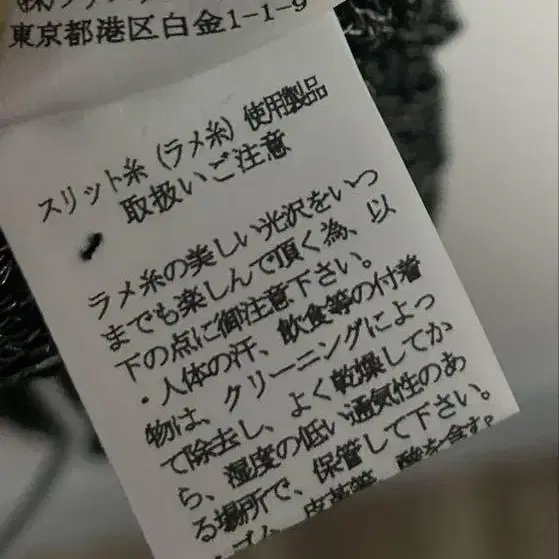 東京都港区白金1-1-9
スリット糸(ラメ糸)使用製品
取扱いご注意
ラメ糸の美しい光沢をいつ
までも楽しんで頂く為、以
下の点に御注意下さい。
・人体の汗、飲食等の付着
物は、クリーニングによっ
て除去し、よく乾燥してか
ら、湿度の低い通気性のあ
る場所で、保管して下さい。